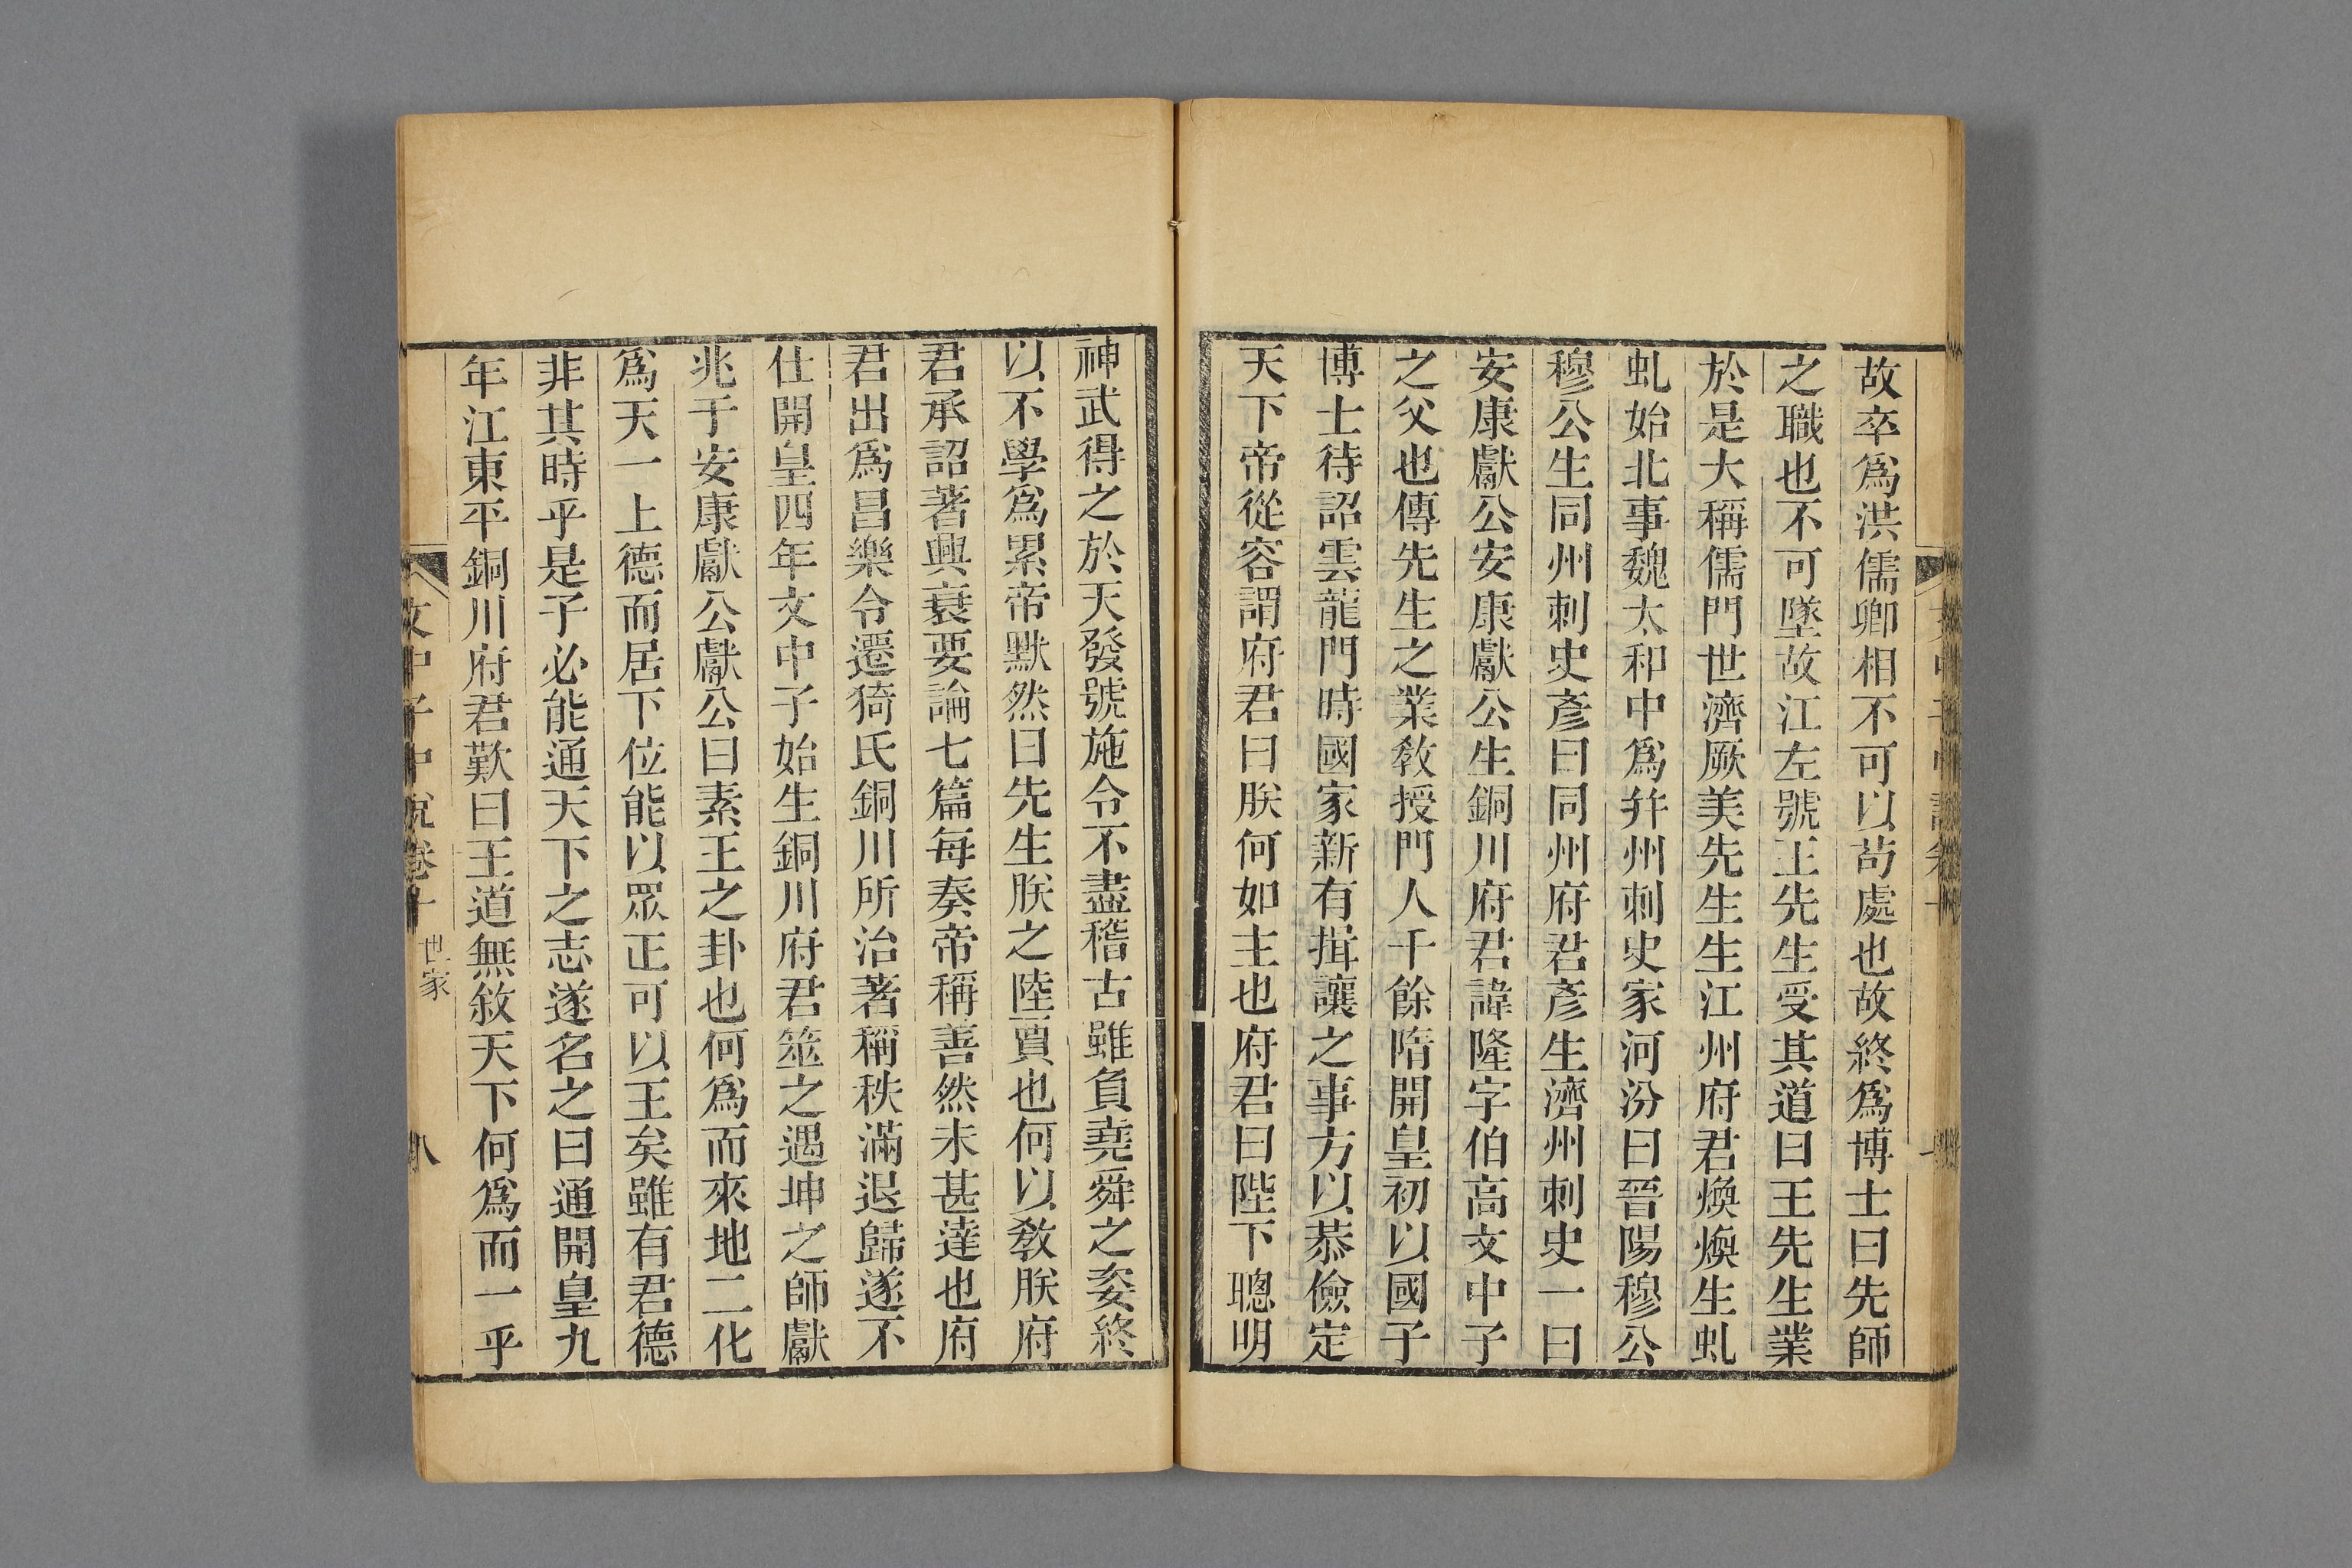 故卒爲洪儒卿相不可以苟處也故終爲博士曰先師
之職也不可墜故江左號王先生受其道曰王先生業
於是大稱儒門世濟厥美先生生江州府君煥煥生虬
虬始北事魏太和中爲幷州刺史家河汾曰晉陽穆公
穆公生同州刺史彥曰同州府君彥生濟州刺史一曰
安康獻公安康獻公生銅川府君諱隆字伯高文中子
之父也傳先生之業敎授門人千餘隋開皇初以國子
博士待詔雲龍門時國家新有揖讓之事方以恭儉定
天下帝從容謂府君曰朕何如主也府君曰陛下聰明
神武得之於天發號施令不盡稽古雖負堯舜之姿終
以不學爲累帝默然曰先生朕之陸賈也何以敎朕府
君承詔著興衰要論七篇每奏帝稱善然未甚達也府
君出爲昌樂令遷猗氏銅川所治著稱秩滿退歸遂不
仕開皇四年文中子始生銅川府君筮之遇坤之師獻
兆于安康獻公獻公曰素王之卦也何爲而來地二化
爲天一上德而居下位能以眾正可以王矣雖有君德
非其時乎是子必能通天下之志遂名之曰通開皇九
年江東平銅川府君歎曰王道無敘天下何爲而一乎
文中子中說卷十 世家 八